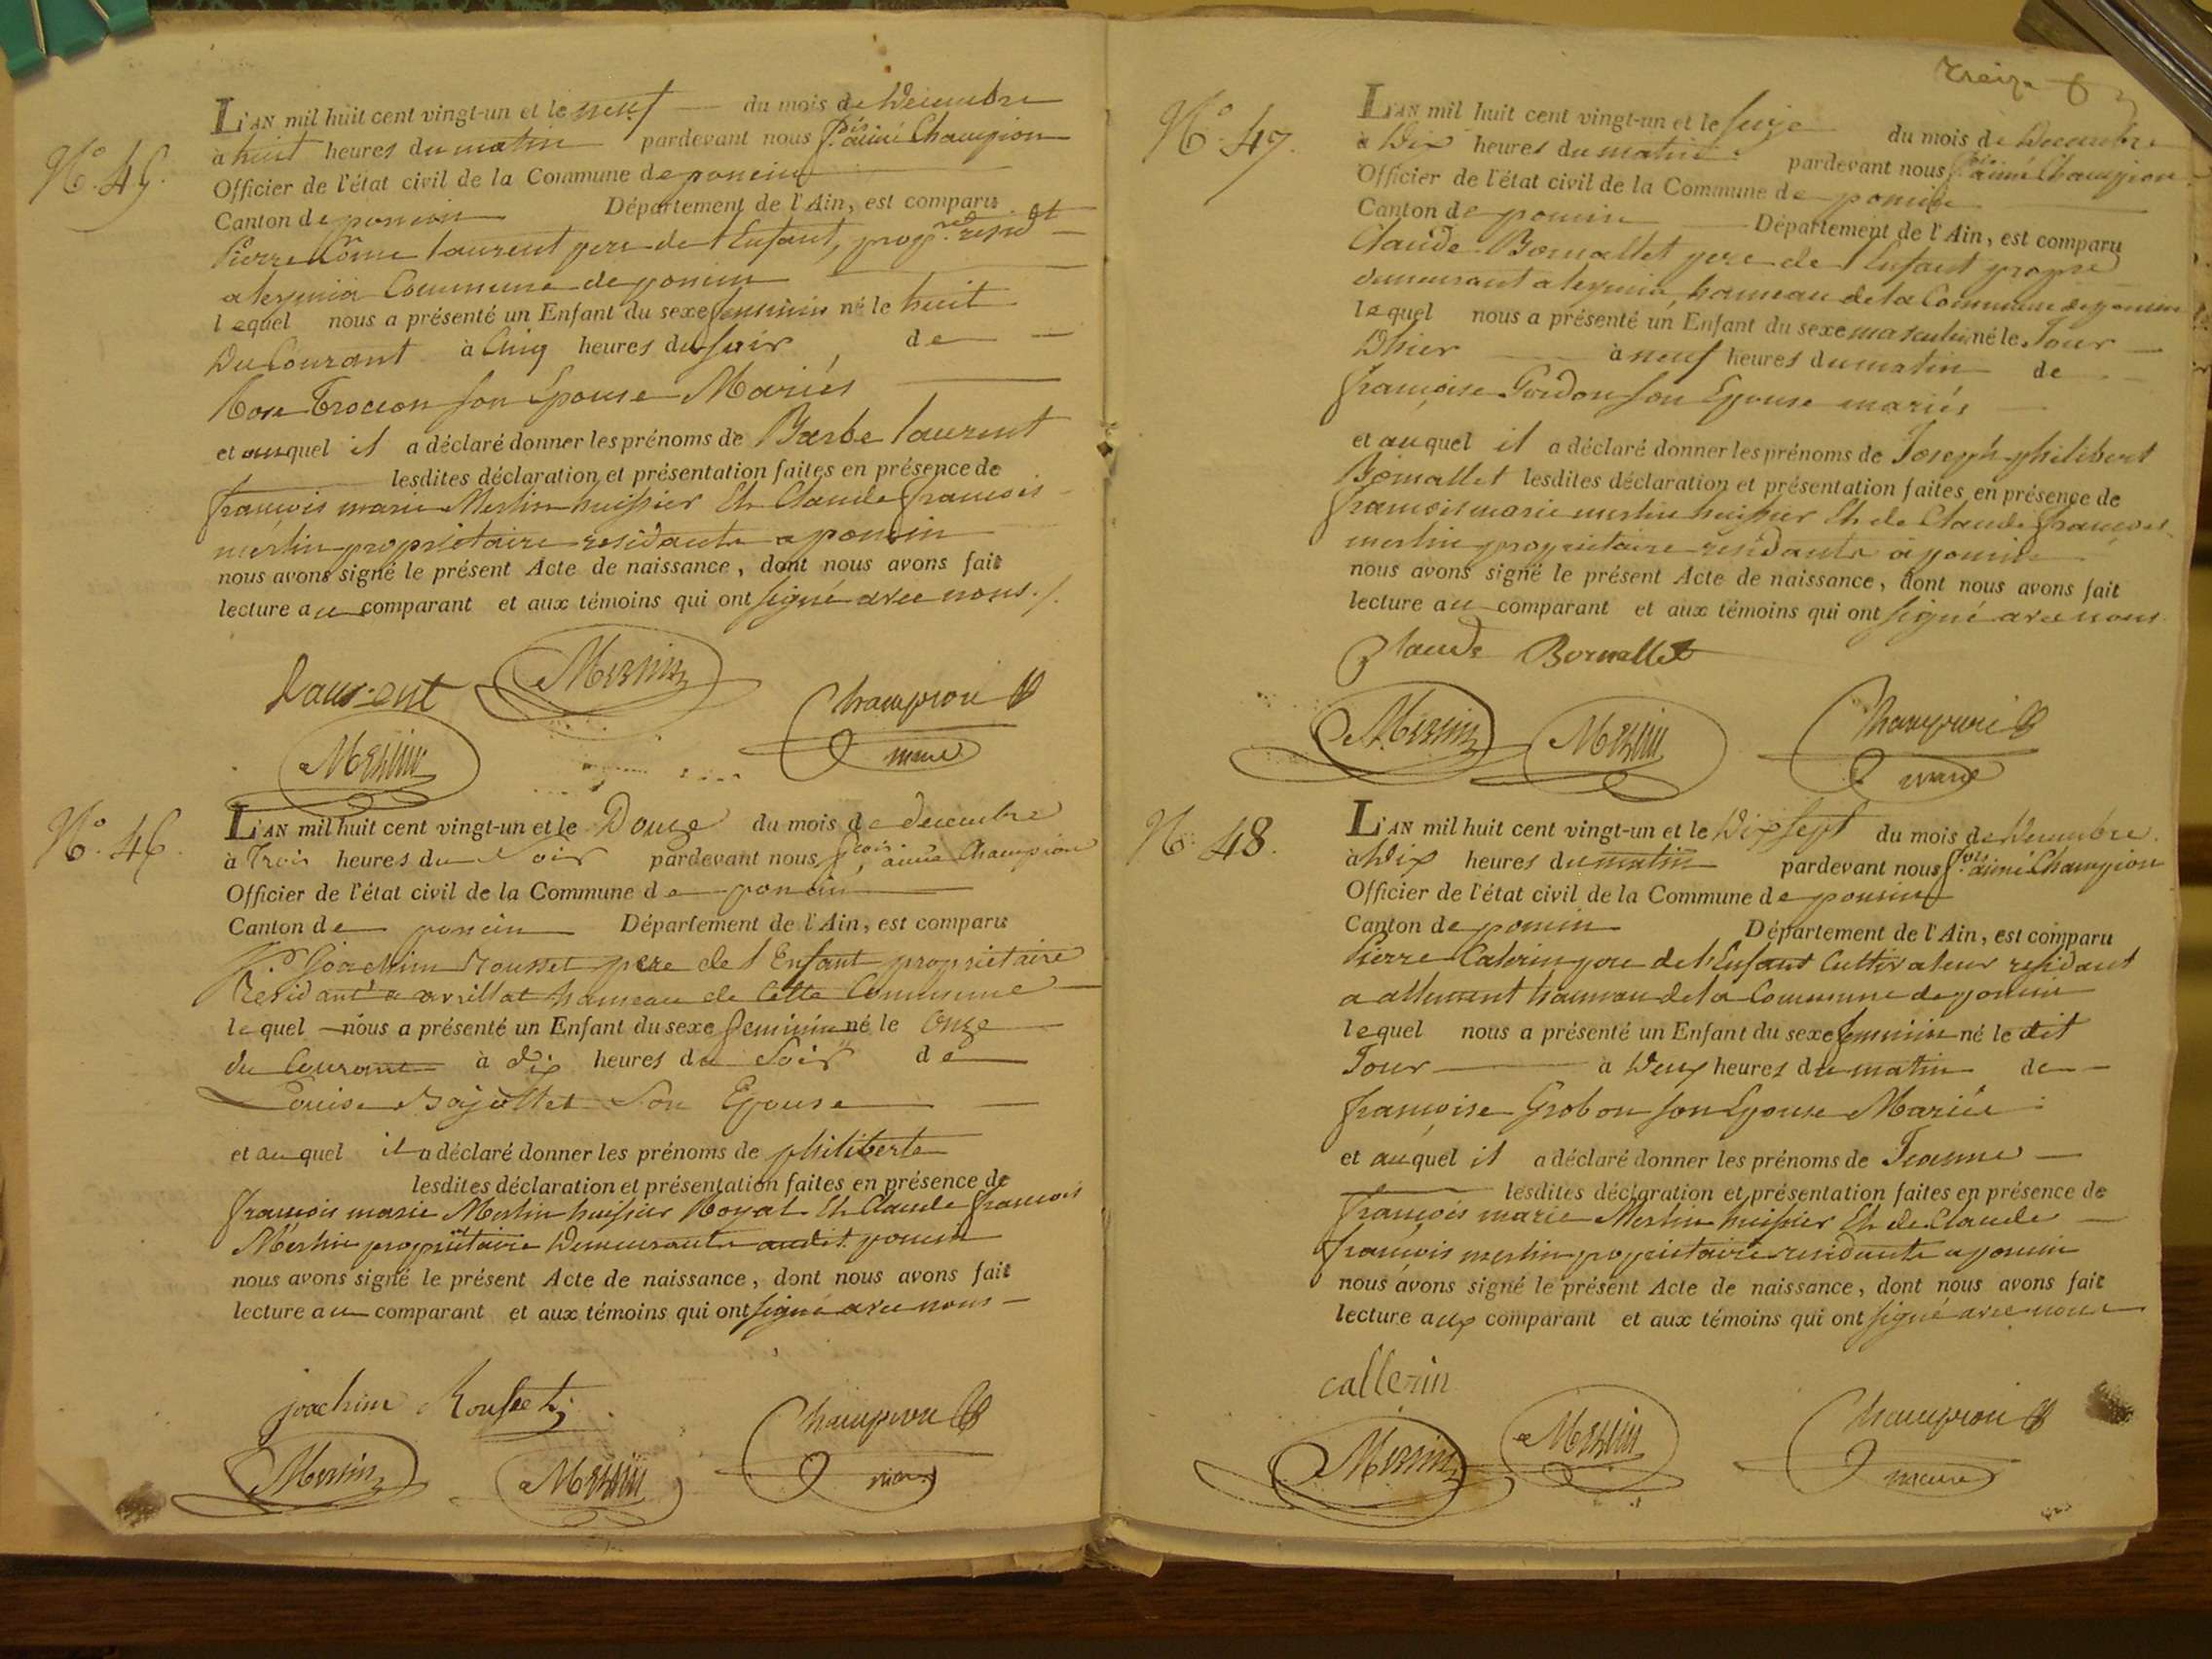 N.º 45.
L'AN mil huit cent vingt-un et le neuf du mois de Decembre
à huit heures du matin pardevant nous f.ois aimé Champion
Officier de l'état civil de la Commune de poncin
Canton de poncin Département de l'Ain, est comparu
Pierre Côme laurent pere de l'Enfant, prop.re resid.t
a leyssia Commune de poncin
lequel nous a présenté un Enfant du sexe feminin né le huit
Du Courant à Cinq heures du soir de
Rose Trocion son Epouse Mariés
et auquel il a déclaré donner les prénoms de Barbe laurent
lesdites déclaration et présentation faites en présence de
françois marie Merlin huissier Et Claude françois
merlin propriétaire residants a poncin
nous avons signé le présent Acte de naissance, dont nous avons fait
lecture au comparant et aux témoins qui ont signé avec nous ./.
Laurent Merlin Champion
Merlin maire
N.º 46.
L'AN mil huit cent vingt-un et le Douze du mois de decembre
à Trois heures du Soir pardevant nous f.cois aimé Champion
Officier de l'état civil de la Commune de poncin
Canton de poncin Département de l'Ain, est comparu
Joachim Rousset pere de l'Enfant propriétaire
Residant a avrillat hameau de Cette Commune
lequel nous a présenté un Enfant du sexe feminin né le Onze
du Courant à dix heures du Soir de
Louise Bajollet Son Epouse
et auquel il a déclaré donner les prénoms de philiberte
lesdites déclaration et présentation faites en présence de
françois marie Merlin huissier Royal Et Claude françois
Merlin propriétaire Demeurants audit poncin
nous avons signé le présent Acte de naissance, dont nous avons fait
lecture au comparant et aux témoins qui ont signé avec nous
joachim Rousset
Champion
Merlin Merlin maire
treize
N.º 47.
L'AN mil huit cent vingt-un et le seize du mois de Decembre
à Dix heures du matin pardevant nous f.ois aimé Champion
Officier de l'état civil de la Commune de poncin
Canton de poncin Département de l'Ain, est comparu
Claude Bornallet pere de l'Enfant propre
demeurant a leyssia, hameau de la Commune de poncin
lequel nous a présenté un Enfant du sexe masculin né le Jour
D'hier à neuf heures du matin de
françoise Gordon son Epouse mariés
et auquel il a déclaré donner les prénoms de Joseph philibert
Bornallet lesdites déclaration et présentation faites en présence de
françois marie merlin huissier Et de Claude françois
merlin propriétaire residants à poncin
nous avons signé le présent Acte de naissance, dont nous avons fait
lecture au comparant et aux témoins qui ont signé avec nous
Claude Bornallet
Merlin Merlin Champion
maire
N.º 48.
L'AN mil huit cent vingt-un et le Dix sept du mois de Decembre
à Dix heures du matin pardevant nous f.ois aimé Champion
Officier de l'état civil de la Commune de poncin
Canton de poncin Département de l'Ain, est comparu
Pierre Calerin pere de l'Enfant Cultivateur residant
a allement hameau de la Commune de poncin
lequel nous a présenté un Enfant du sexe feminin né le dit
Jour à Deux heures du matin de
françoise Grobon son Epouse Mariée
et auquel il a déclaré donner les prénoms de Jeanne
lesdites déclaration et présentation faites en présence de
françois marie Merlin huissier Et de Claude
françois merlin propriétaire residants a poncin
nous avons signé le présent Acte de naissance, dont nous avons fait
lecture aux comparant et aux témoins qui ont signé avec nous
callerin
Merlin Merlin Champion
maire